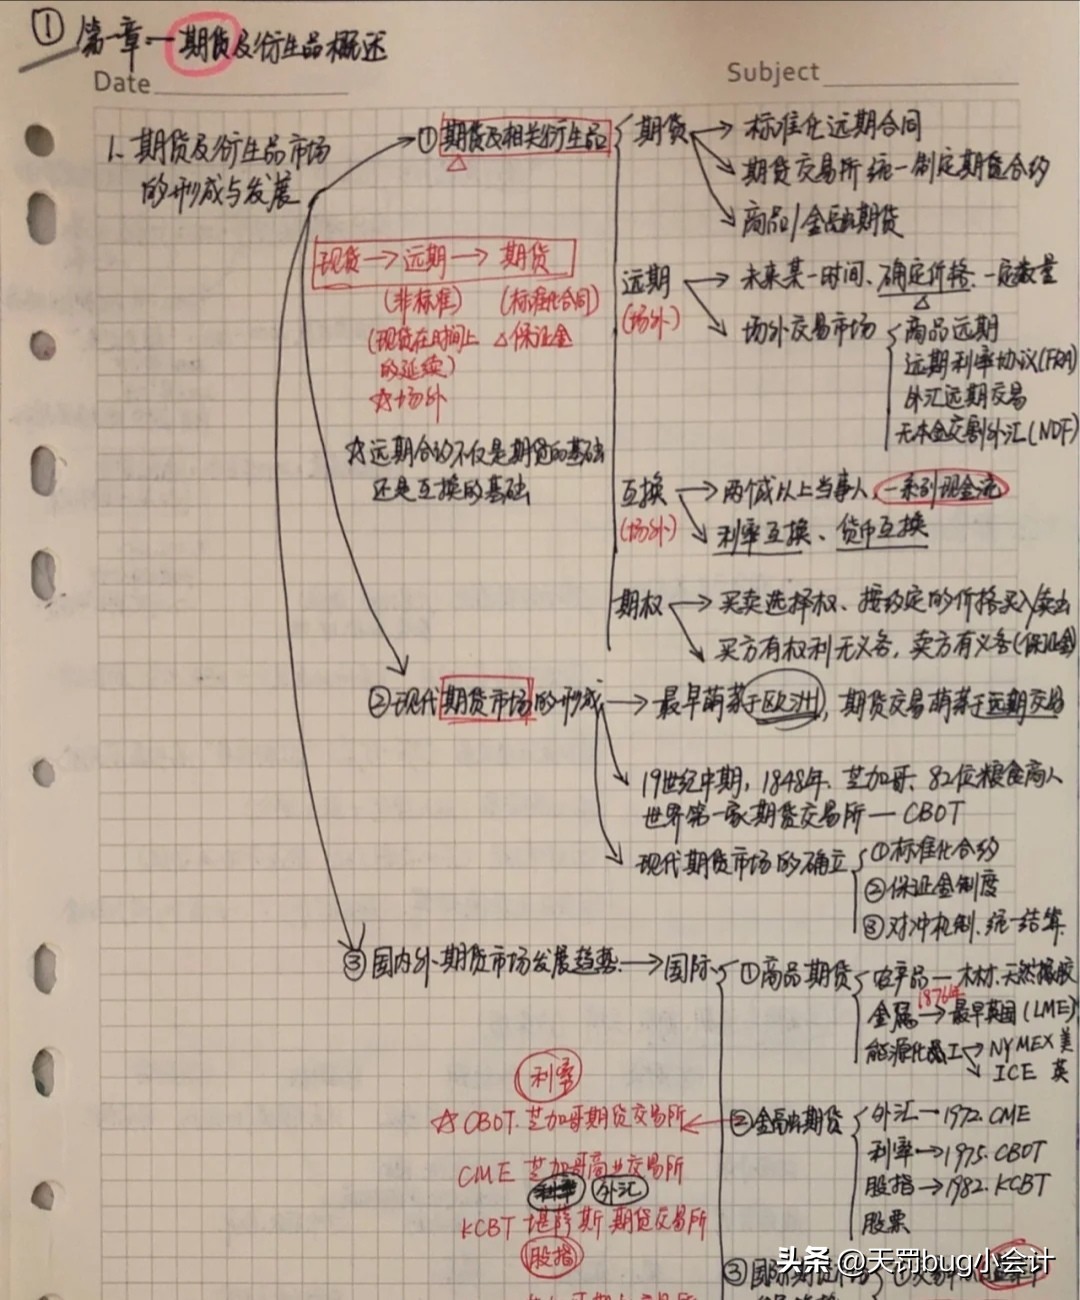 ① 第一章一期货及衍生品概述
Date
Subject
1、期货及衍生品市场
的形成与发展
①期货及相关衍生品
期货
标准化远期合同
期货交易所统一制定期货合约
商品/金融期货
现货→远期→期货
(非标准) (标准化合同)
(现货在时间上 △保证金
的延续)
☆场外
☆远期合约不仅是期货的基础
还是互换的基础
远期
(场外)
未来某一时间、确定价格、一定数量
场外交易市场
商品远期
远期利率协议(FRA)
外汇远期交易
无本金交割外汇(NDF)
互换
(场外)
两个或以上当事人,一系列现金流
利率互换、货币互换
期权
买卖选择权、按约定的价格买入/卖出
买方有权利无义务,卖方有义务(保证金)
②现代期货市场的形成
最早萌芽于欧洲,期货交易萌芽于远期交易
19世纪中期,1848年、芝加哥、82位粮食商人
世界第一家期货交易所—CBOT
现代期货市场的确立
①标准化合约
②保证金制度
③对冲机制、统一结算
③国内外期货市场发展趋势→国际
①商品期货
农产品—木材、天然橡胶
1876年
金属→最早英国(LME)
能源化工→NYMEX 美
ICE 英
②金融期货
外汇→1972.CME
利率→1975.CBOT
股指→1982.KCBT
股票
利率
☆CBOT.芝加哥期货交易所
CME 芝加哥商业交易所
外汇
KCBT 堪萨斯期货交易所
股指
③国际期货市场
头条 @天罚bug小会计